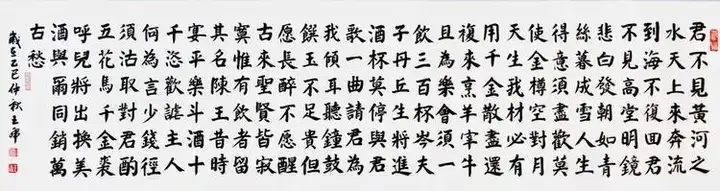 君不見黃河之
水天上來奔流
到海不復回君
不見高堂明鏡
悲白發朝如青
絲暮成雪人生
得意須盡歡莫
使金樽空對月
天生我材必有
用千金散盡還
複來烹羊宰牛
且為樂會須一
飲三百杯岑夫
子丹丘生將進
酒杯莫停與君
歌一曲請君為
我傾耳聽鐘鼓
饌玉不足貴但
愿長醉不愿醒
古來聖賢皆寂
寞惟有飲者留
其名陳王昔時
宴平樂斗酒十
千恣歡謔主人
何為言少錢徑
須沽取對君酌
五花馬千金裘
呼兒將出換美
酒與爾同銷萬
古愁
歲在乙巳仲秋王